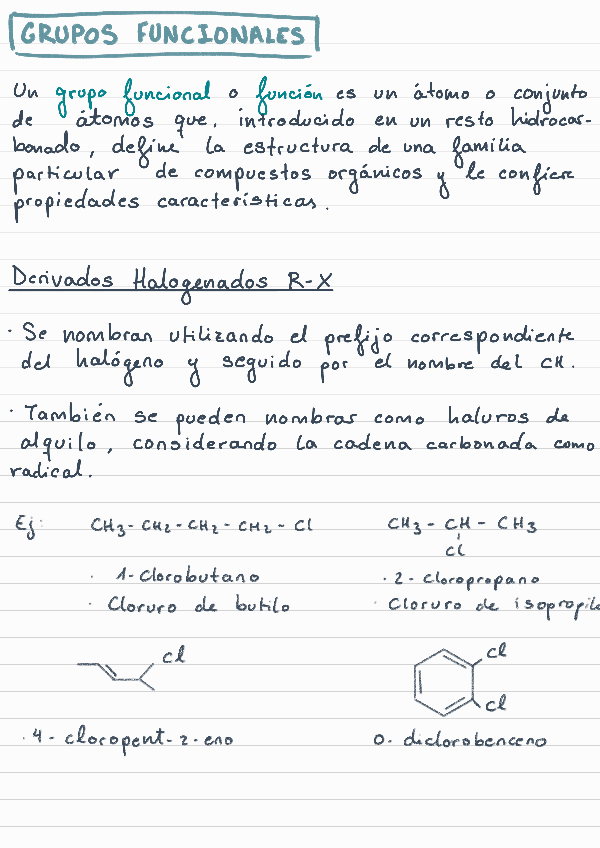 GRUPOS FUNCIONALES
Un grupo funcional o función es un átomo o conjunto
de átomos que, introducido en un resto hidrocar-
bonado, define la estructura de una familia
particular de compuestos orgánicos y le confiere
propiedades características.
Derivados Halogenados R-X
· Se nombran utilizando el prefijo correspondiente
del halógeno y seguido por el nombre del CH.
· También se pueden nombrar como haluros de
alquilo, considerando la cadena carbonada como
radical.
Ej: CH3 - CH2 - CH2 - CH2 - Cl CH3 - CH - CH3
Cl
· 1-Clorobutano · 2-Cloropropano
· Cloruro de butilo · Cloruro de isopropilo
Cl Cl
Cl
· 4-cloropent-2-eno O- diclorobenceno